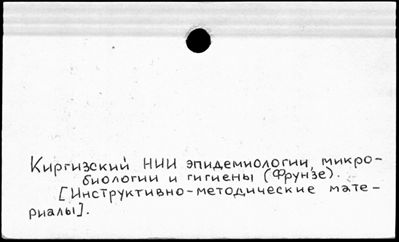 Киргизский НИИ эпидемиологии, микро-
биологии и гигиены (Фрунзе).
[Инструктивно-методические мате-
риалы].